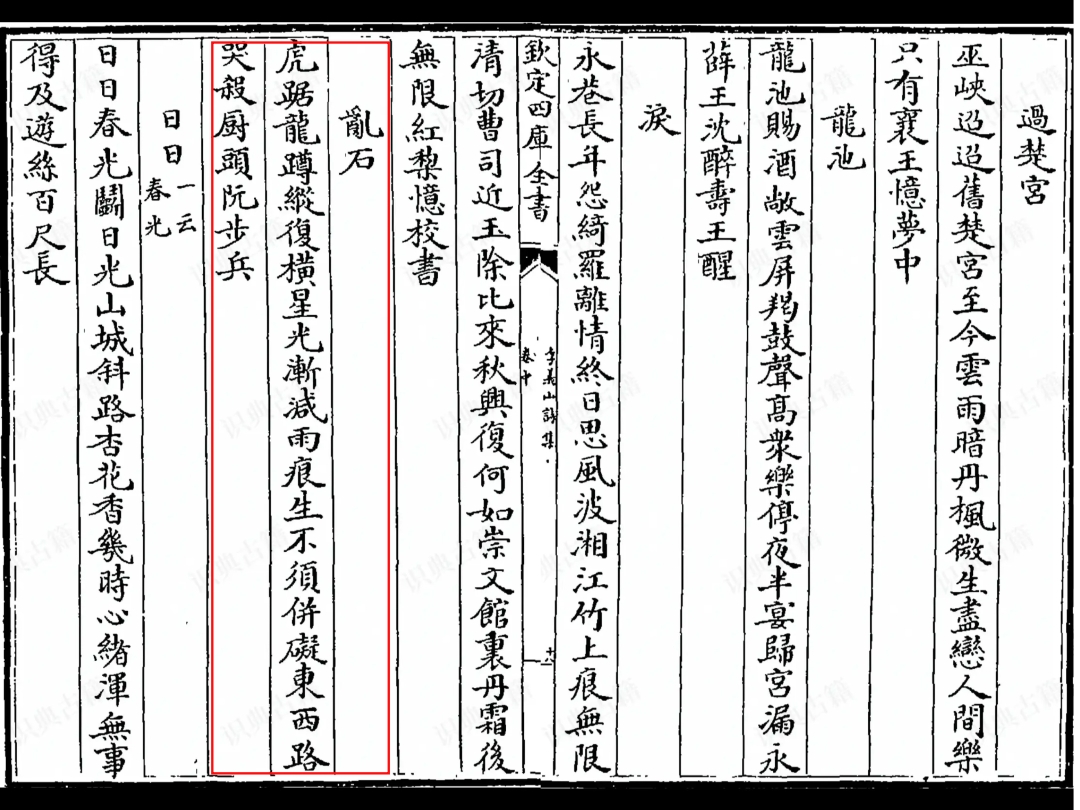 過楚宮
巫峽迢迢舊楚宮至今雲雨暗丹楓微生盡戀人間樂
只有襄王憶夢中
龍池
龍池賜酒敞雲屏羯鼓聲高衆樂停夜半宴歸宮漏永
薛王沈醉壽王醒
淚
永巷長年怨綺羅離情終日思風波湘江竹上痕無限
欽定四庫全書
李義山詩集
卷中
清切曹司近玉除比來秋興復何如崇文館裏丹霜後
無限紅梨憶校書
亂石
虎踞龍蹲縱復橫星光漸減雨痕生不須併礙東西路
哭殺厨頭阮步兵
日日一云春光
日日春光鬬日光山城斜路杏花香幾時心緒渾無事
得及遊絲百尺長